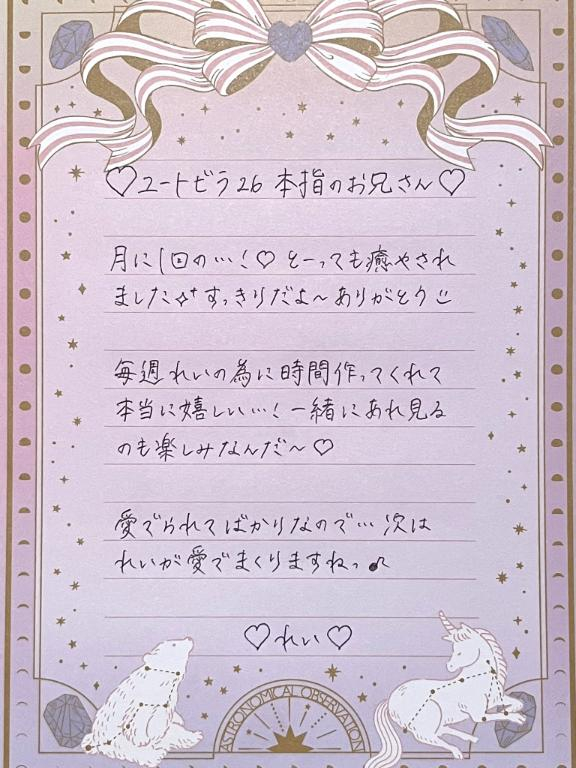 ♡ユートピラ26 本指のお兄さん♡
月に1回の…!♡ とーっても癒やされ
ました✧⁺すっきりだよ〜ありがとう☺
毎週れいの為に時間作ってくれて
本当に嬉しい…!一緒にあれ見る
のも楽しみなんだ〜♡
愛でられてばかりなので…次は
れいが愛でまくりますねっ♪
♡れい♡
ASTRONOMICAL OBSERVATION